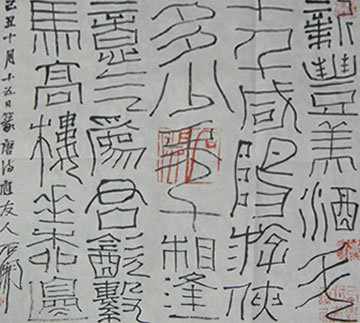 新豐美酒斗
十千咸陽游俠
多少年相逢
意气爲君飲繫
馬高樓垂柳邊
己丑十月十五日篆唐詩應友人